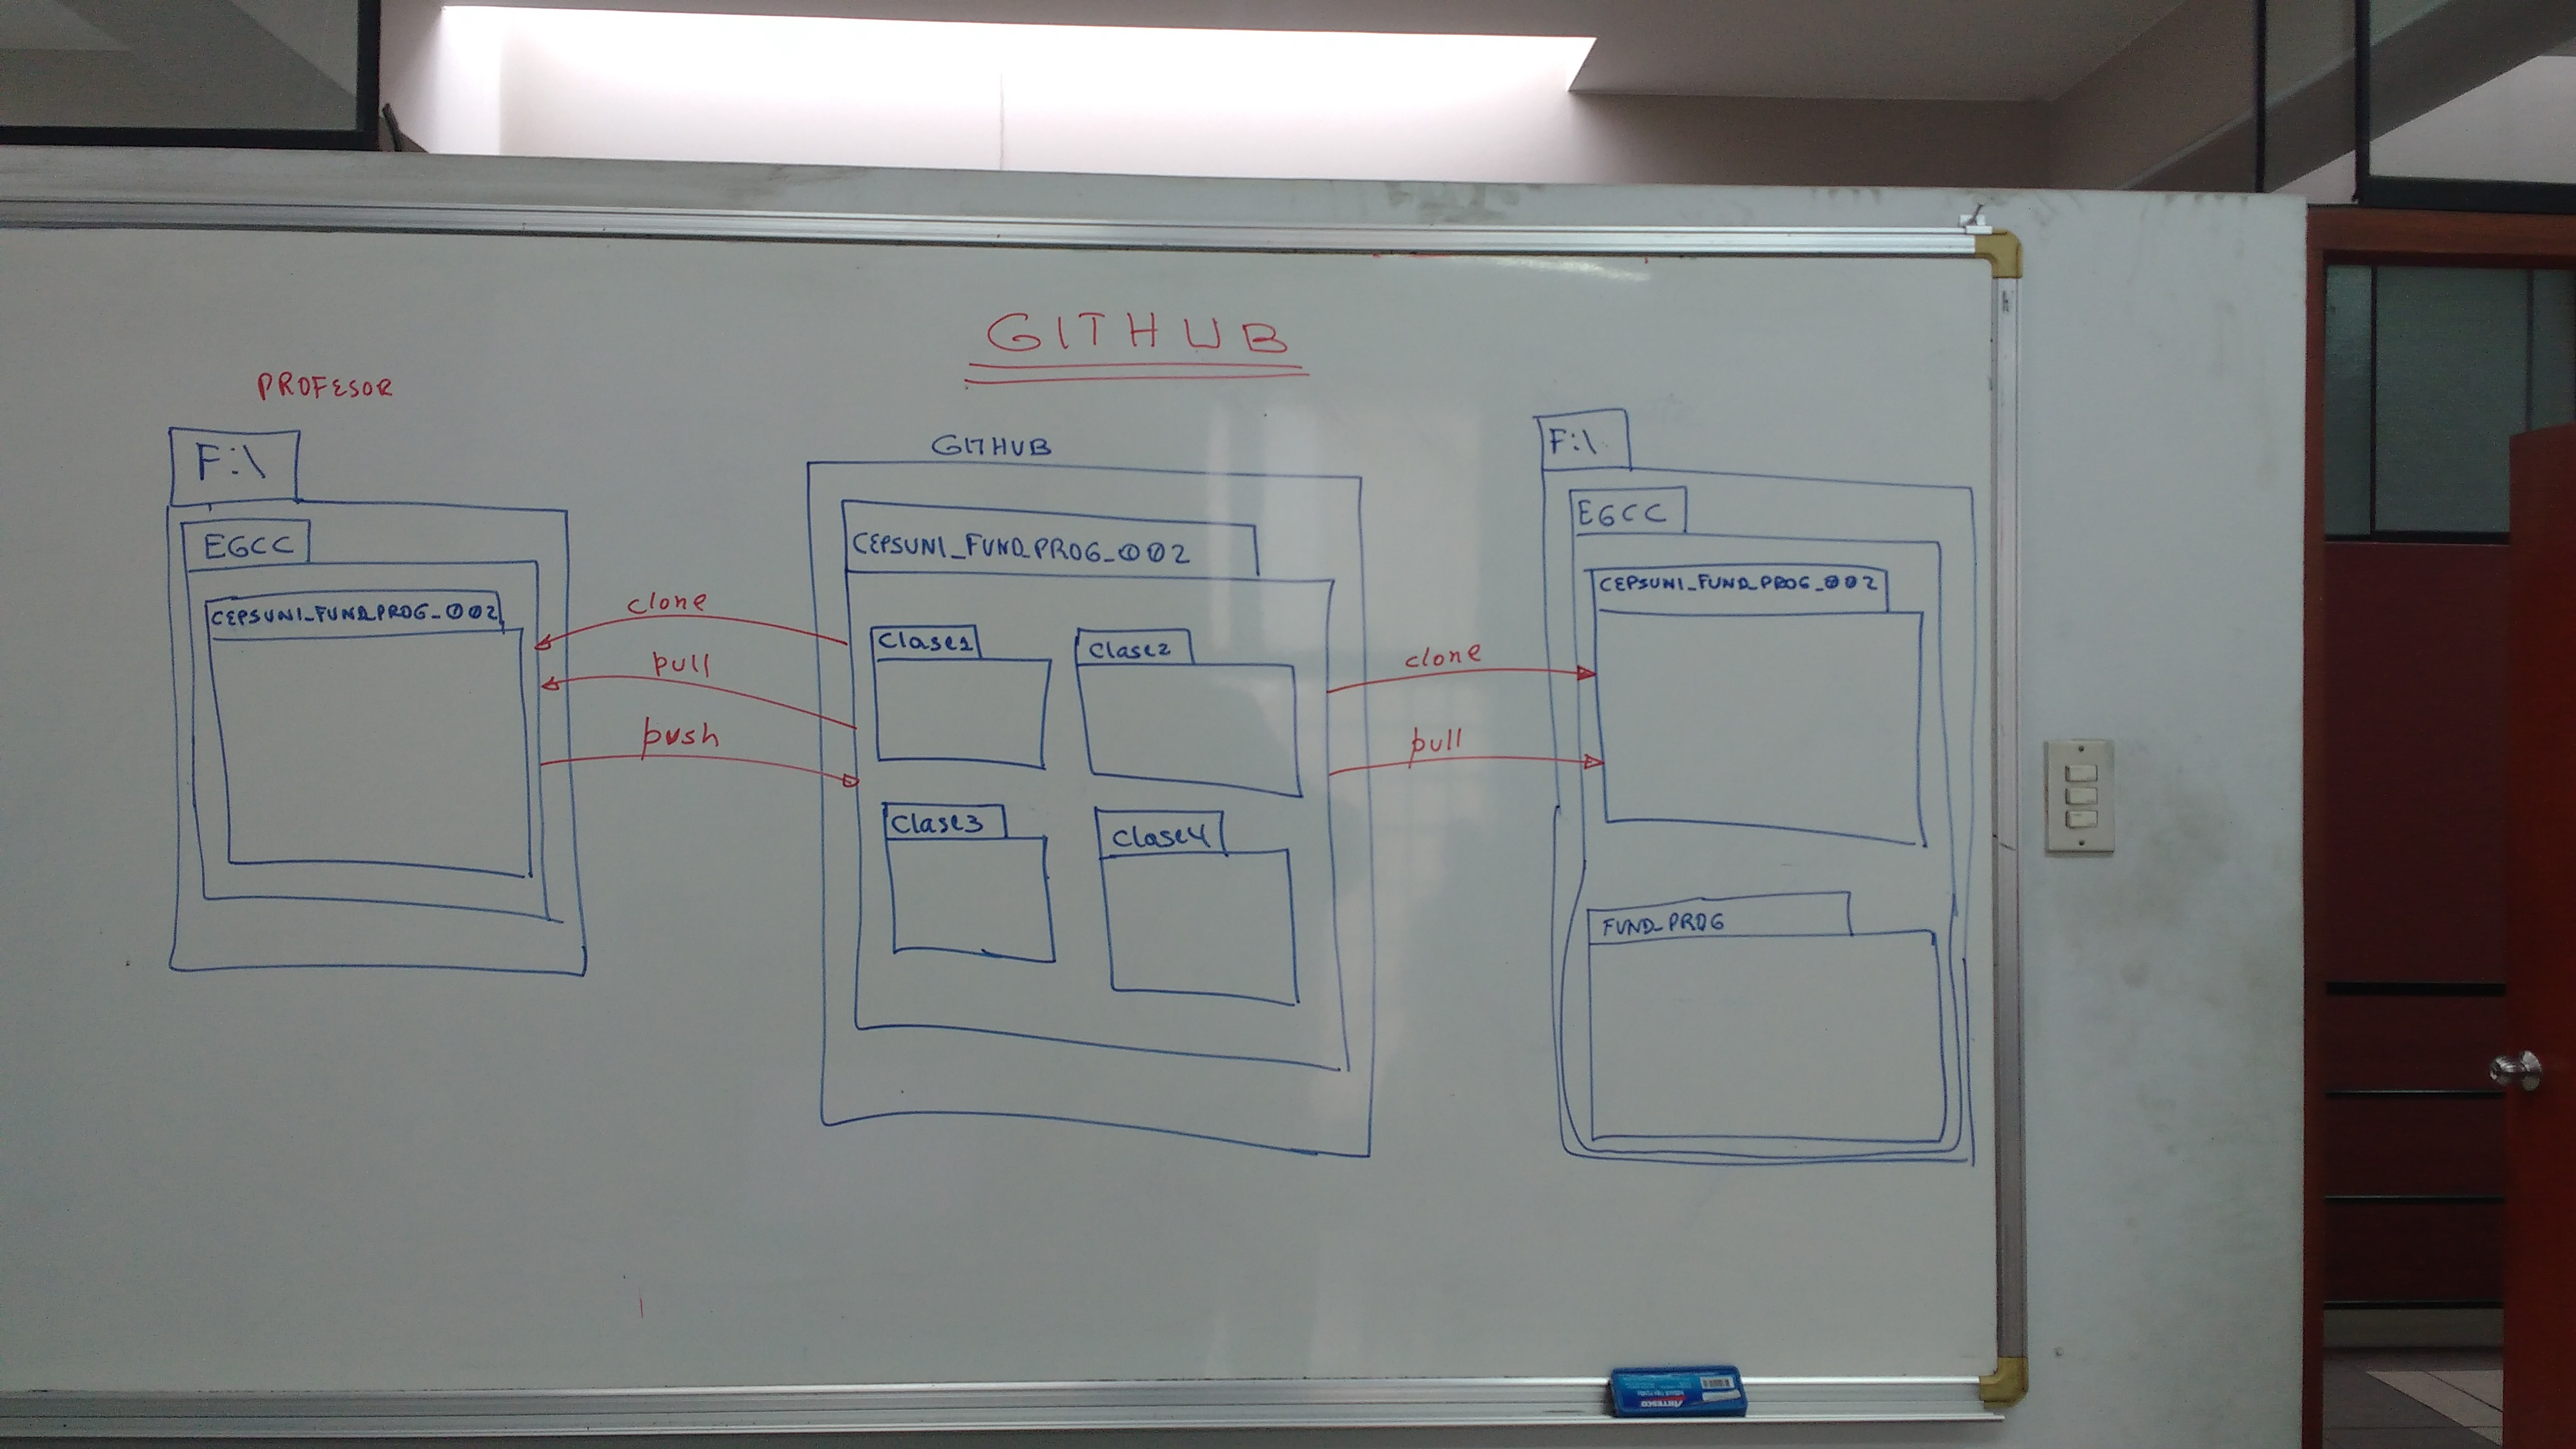 GITHUB
PROFESOR
F:\
EGCC
CEPSUNI_FUND_PROG_002
clone
pull
push
GITHUB
CEPSUNI_FUND_PROG_002
Clase1
Clase2
Clase3
Clase4
clone
pull
F:\
EGCC
CEPSUNI_FUND_PROG_002
FUND_PROG
ARTESCO